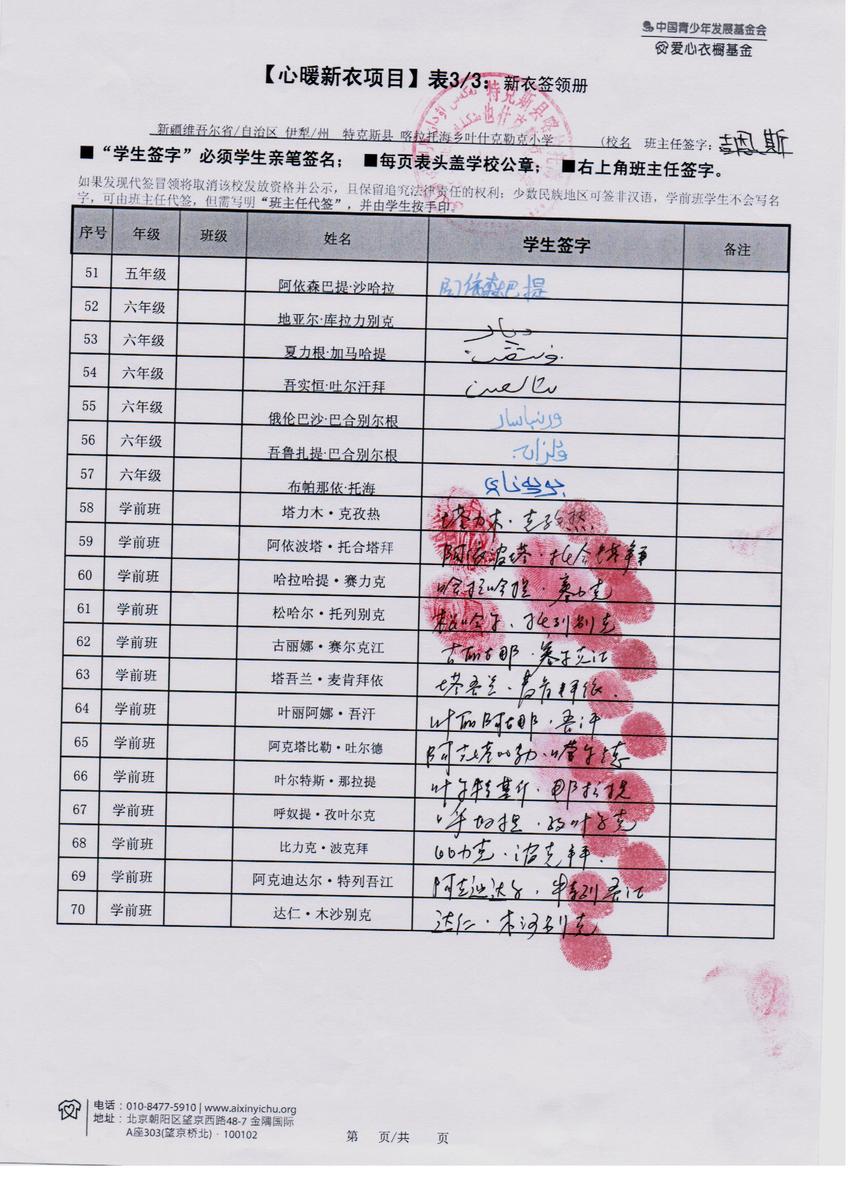 中国青少年发展基金会
爱心衣橱基金
【心暖新衣项目】表3/3：新衣签领册
特克斯县喀
新疆维吾尔省/自治区 伊犁/州 特克斯县 喀拉托海乡叶什克勒克小学 （校名 班主任签字：
■“学生签字”必须学生亲笔签名； ■每页表头盖学校公章； ■右上角班主任签字。
如果发现代签冒领将取消该校发放资格并公示，且保留追究法律责任的权利；少数民族地区可签非汉语，学前班学生不会写名
字，可由班主任代签，但需写明“班主任代签”，并由学生按手印。
序号 年级 班级 姓名 学生签字 备注
51 五年级 阿依森巴提·沙哈拉 阿依森巴提
52 六年级 地亚尔·库拉力别克 ديار
53 六年级 夏力根·加马哈提
54 六年级 吾实恒·吐尔汗拜
55 六年级 俄伦巴沙·巴合别尔根 ورنباسار
56 六年级 吾鲁扎提·巴合别尔根
57 六年级 布帕那依·托海
58 学前班 塔力木·克孜热 塔力木·克孜热
59 学前班 阿依波塔·托合塔拜 阿依波塔·托合塔拜
60 学前班 哈拉哈提·赛力克 哈拉哈提·赛力克
61 学前班 松哈尔·托列别克 松哈尔·托列别克
62 学前班 古丽娜·赛尔克江 古丽娜·赛尔克江
63 学前班 塔吾兰·麦肯拜依 塔吾兰·麦肯拜依
64 学前班 叶丽阿娜·吾汗 叶丽阿娜·吾汗
65 学前班 阿克塔比勒·吐尔德
66 学前班 叶尔特斯·那拉提 叶尔特斯·那拉提
67 学前班 呼奴提·孜叶尔克 呼奴提·孜叶尔克
68 学前班 比力克·波克拜 比力克·波克拜
69 学前班 阿克迪达尔·特列吾江 阿克迪达尔·特列吾江
70 学前班 达仁·木沙别克 达仁·木沙别克
电话：010-8477-5910 | www.aixinyichu.org
地址：北京朝阳区望京西路48-7 金隅国际
A座303(望京桥北)·100102
第 页/共 页